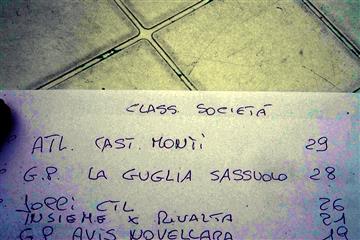 CLASS. SOCIETÀ
ATL. CAST. MONTI 29
G.P. LA GUGLIA SASSUOLO 28
CTL 26
INSIEME X RIVALTA 21
G.P. AVIS NOVELLARA 19